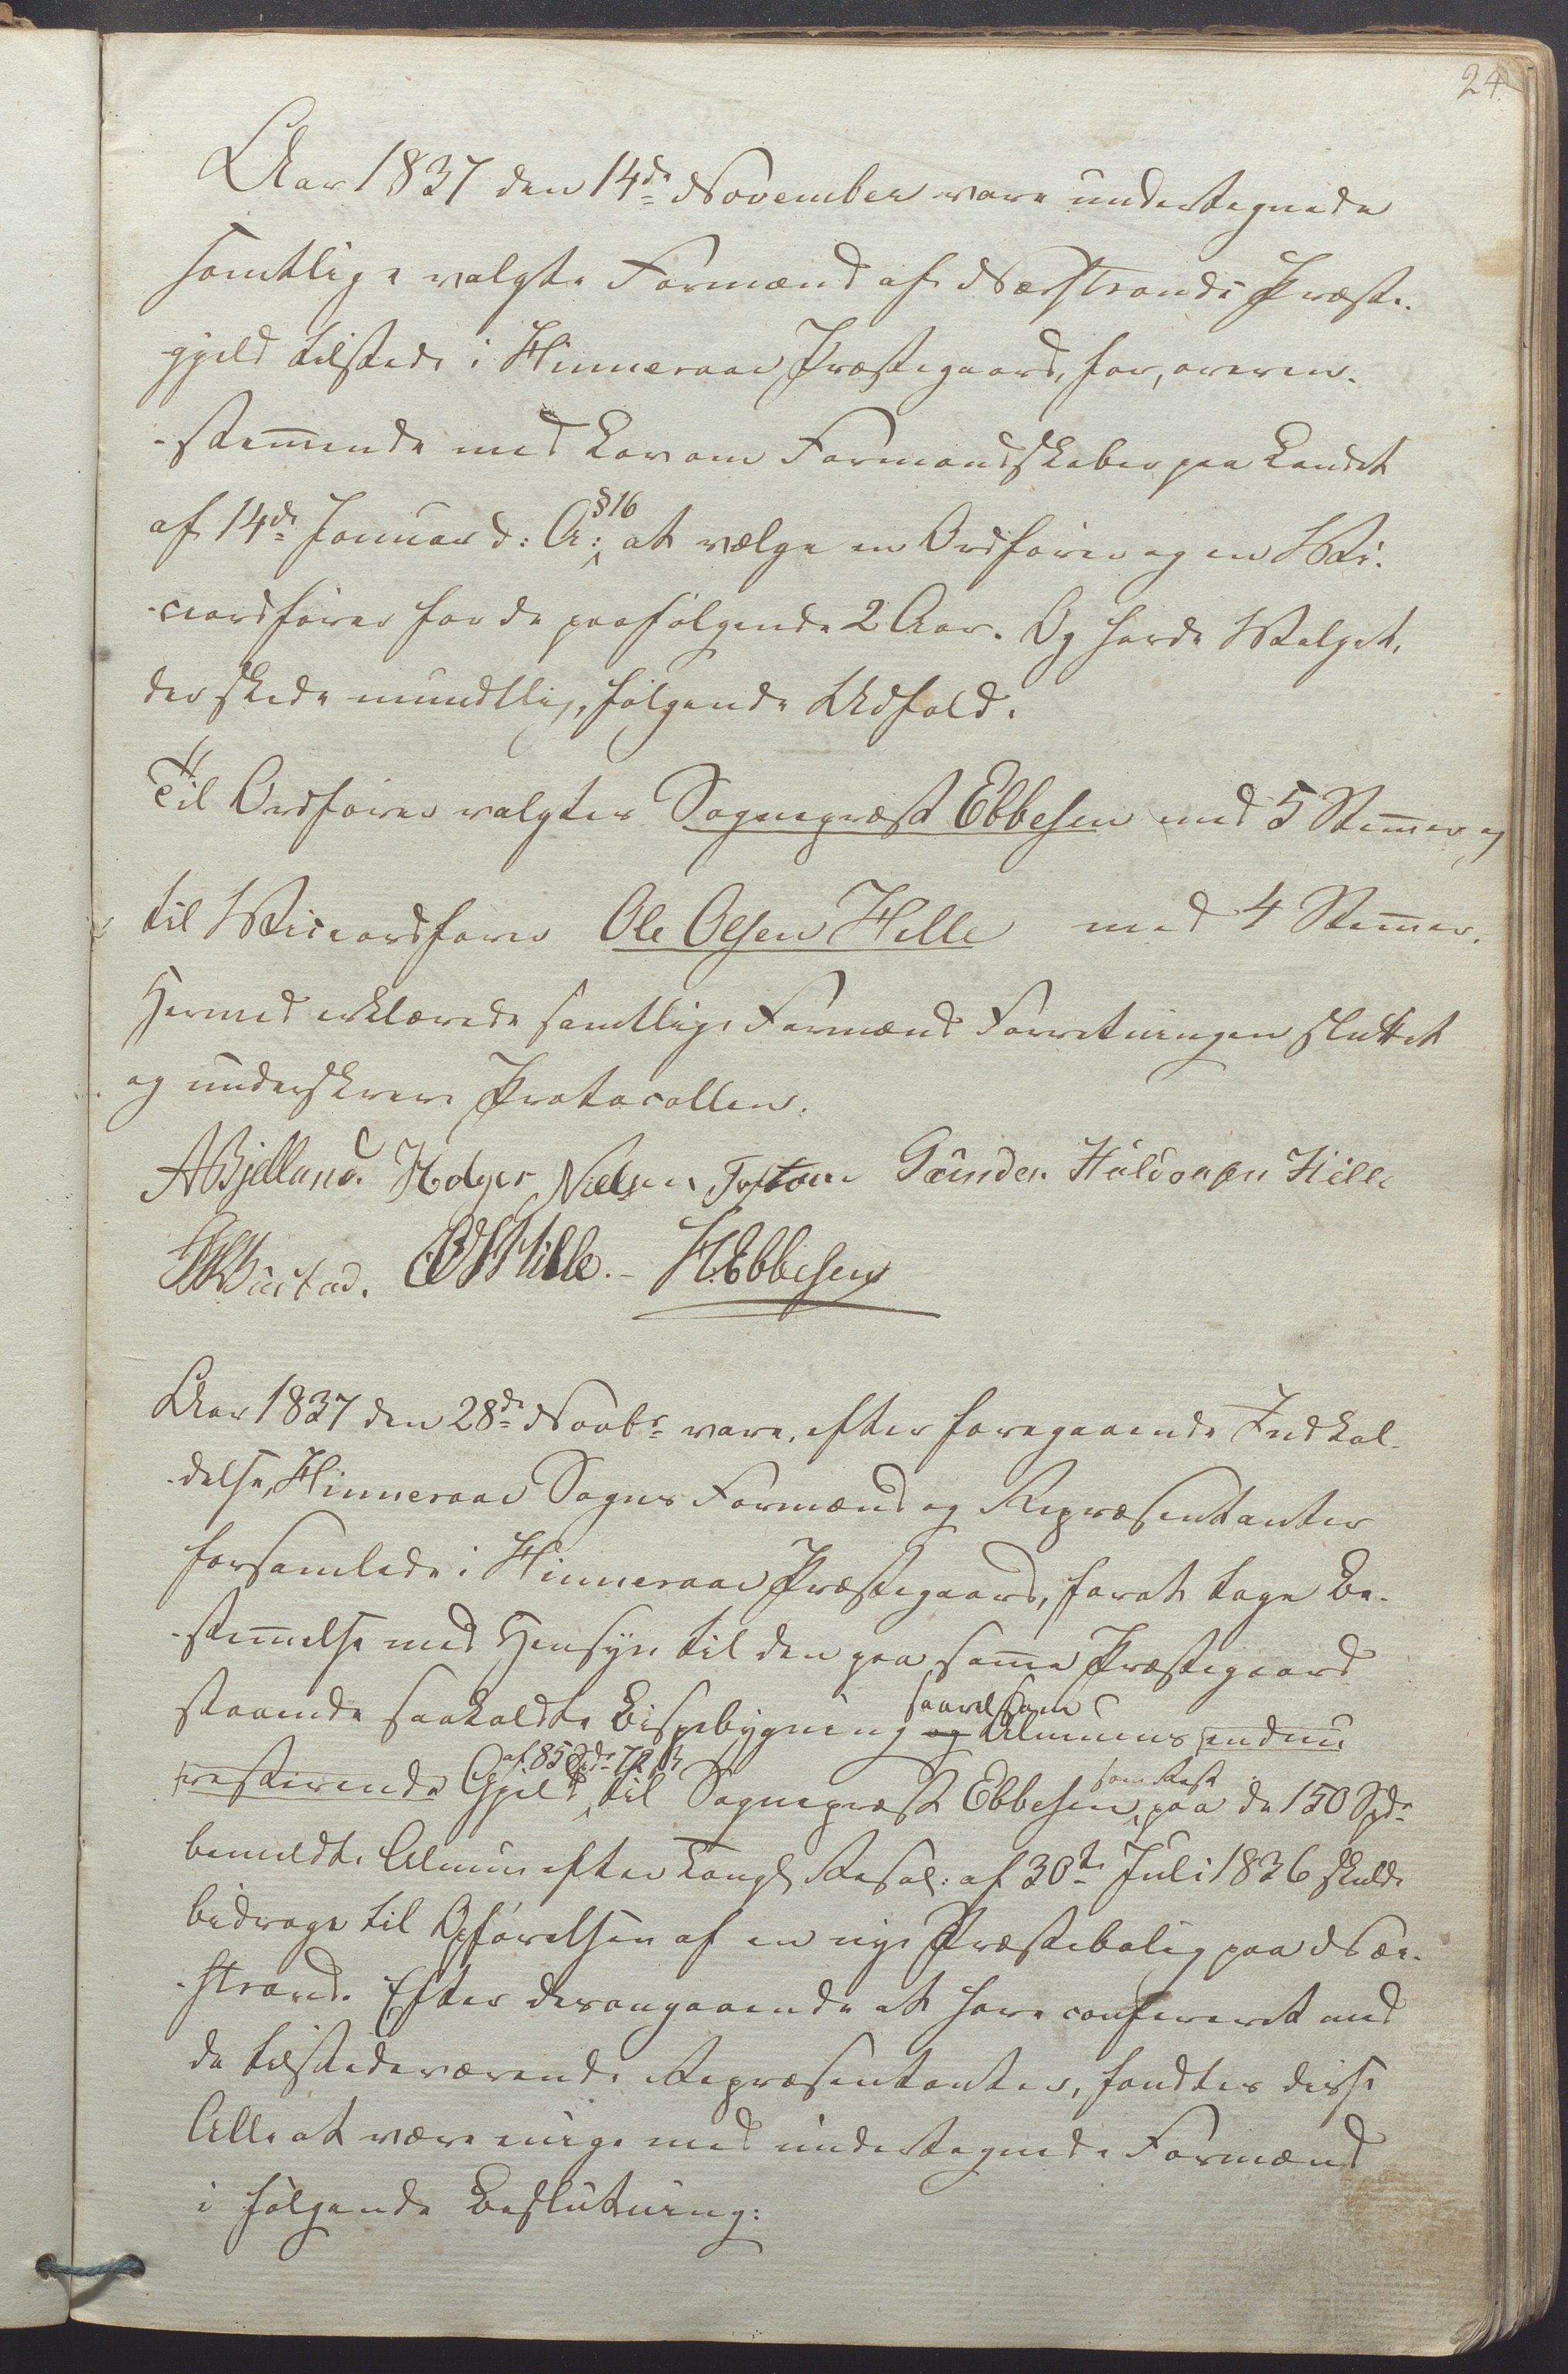 24.
Aar 1837 den 14de November vare undertegnede
samtlige valgte Formænd af Nærstrands Præste-
gjeld tilstede i Hinneraae Præstegaard, for, overeen-
-stem̄ende med Lov om Formandskaber paa Landet
af 14de Januar d: A: §16 at vælge en Ordfører og en Vi-
-ceordfører for de paafølgende 2 Aar. Og havde Valget,
der skede mundtlig, følgende Udfald.
Til Ordfører valgtes Sognepræst Ebbesen med 5 Stem̄er og
til Viceordfører Ole Olsen Hille med 4 Stem̄er.
Hermed erklærede samtlige Formænd Forretningen sluttet
og underskreve Protocollen.
ABjelland. Holger Nielsen Toftøen Gunder Haldorsen Hille
Bustad. OOHille. – H.Ebbesen
Aar 1837 den 28de Novbr vare, efter foregaaende Indkal-
-delse, Hinneraae Sogns Formænd og Repræsentanter
forsamlede i Hinneraae Præstegaard, forat tage Be-
-stem̄else med Hensyn til den paa sam̄e Præstegaard
staaende saakaldte Bispebygning og saavelsom Almuens endnu
resterende Gjeld af 85 Spd 72 ß til Sognepræst Ebbesen, som Rest paa de 150 Spd
bemeldte Almue efter Kongl. Resol: af 30te Juli 1836 skulde
bidrage til Opførelsen af en nye Præstebolig paa Nær-
-strand. Efter desangaaende at have confereret med
de tilstedeværende Repræsentanter, fandtes disse
Alle at være enige med undertegnede Formænd
i følgende Beslutning: